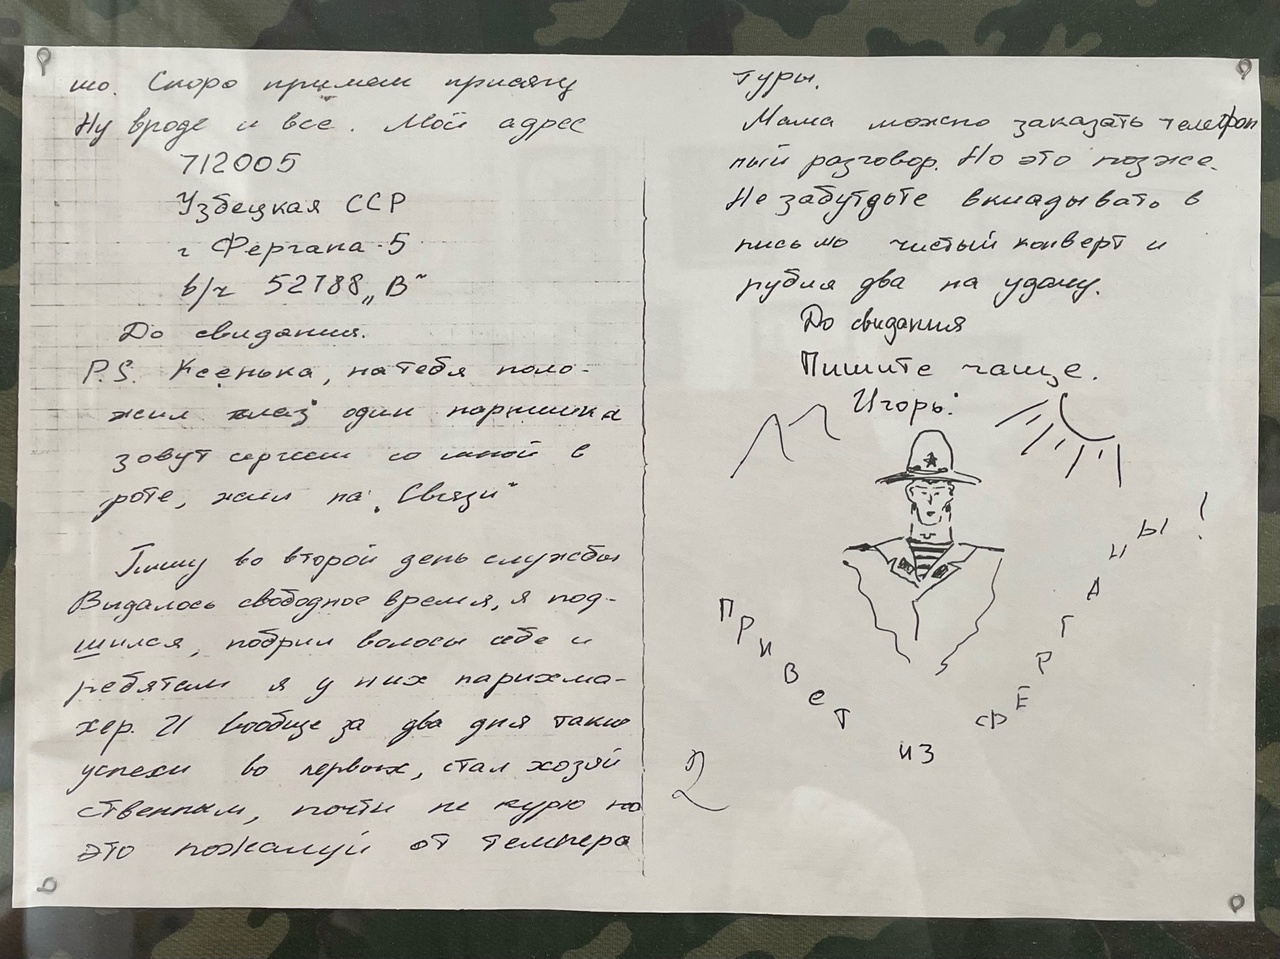 шо. Скоро примем присягу
Ну вроде и все. Мой адрес
712005
Узбецкая ССР
г Фергана-5
в/ч 52788 „В"
До свидания.
P.S. Ксенька, на тебя поло-
жил глаз один парнишка
зовут сергеем со мной в
роте, жил на „Связи"
Пишу во второй день службы
Выдалось свободное время, я под-
шился, побрил волосы себе и
ребятам я у них парихма-
хер. И вообще за два дня такие
успехи во первых, стал хозяй
ственным, почти не курю но
это пожалуй от темпера
туры.
Мама можно заказать телефон
ный разговор. Но это позже.
Не забутдьте вкладывать в
письмо чистый конверт и
рубля два на удачу.
До свидания
Пишите чаще.
Игорь!
Привет из Ферганы!
2